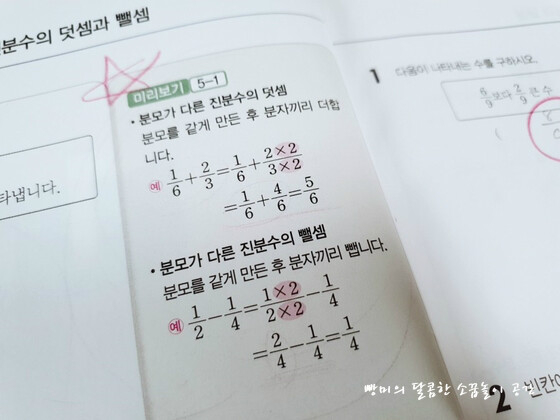 분수의 덧셈과 뺄셈
타냅니다.
미리보기 5-1
• 분모가 다른 진분수의 덧셈
분모를 같게 만든 후 분자끼리 더합
니다.
예 1/6 + 2/3 = 1/6 + 2×2/3×2
= 1/6 + 4/6 = 5/6
• 분모가 다른 진분수의 뺄셈
분모를 같게 만든 후 분자끼리 뺍니다.
예 1/2 - 1/4 = 1×2/2×2 - 1/4
= 2/4 - 1/4 = 1/4
1 다음이 나타내는 수를 구하시오.
6/9보다 2/9 큰 수
2 빈칸에
빵미의 달콤한 소꿉놀이 공간